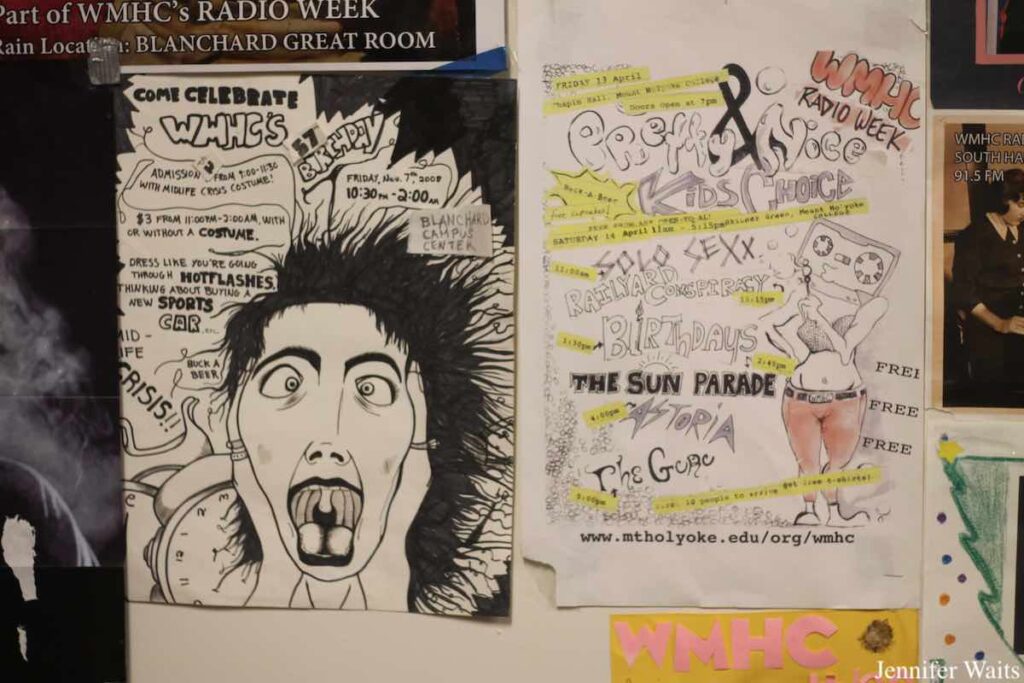 Part of WMHC's RADIO WEEK
Rain Location: BLANCHARD GREAT ROOM
COME CELEBRATE
WMHC'S
57
BIRTHDAY
ADMISSION
FROM 9:00-11:30
WITH MIDLIFE CRISIS COSTUME!
FRIDAY, NOV. 7th, 2008
10:30PM -2:00AM
BLANCHARD
CAMPUS
CENTER
$3 FROM 11:00PM-2:00AM, WITH
OR WITHOUT A COSTUME.
DRESS LIKE YOU'RE GOING
THROUGH HOTFLASHES,
THINKING ABOUT BUYING A
NEW SPORTS
CAR, etc.
MID-
LIFE
CRISIS!!
BUCK A
BEER
FRIDAY 13 April
Chapin Hall, Mount Holyoke College
Doors Open at 7pm
WMHC
RADIO WEEK
Pretty & Nice
KIDS CHOICE
Buck-A-Beer
for cupcakes!
Skinner Green, Mount Holyoke
COLLEGE
SATURDAY 14 April 11am - 5:15pm
SOLO SEXX
11:00am
RAILYARD CONSPIRACY
12:15pm
BIRTHDAYS
1:30pm
2:45pm
THE SUN PARADE
4:00pm
ASTORIA
The Gunc
5:00pm
10 people to arrive get free t-shirts!
FREE
FREE
FREE
WMHC
www.mtholyoke.edu/org/wmhc
WMHC RA
SOUTH HA
91.5 FM
WMHC
Jennifer Waits